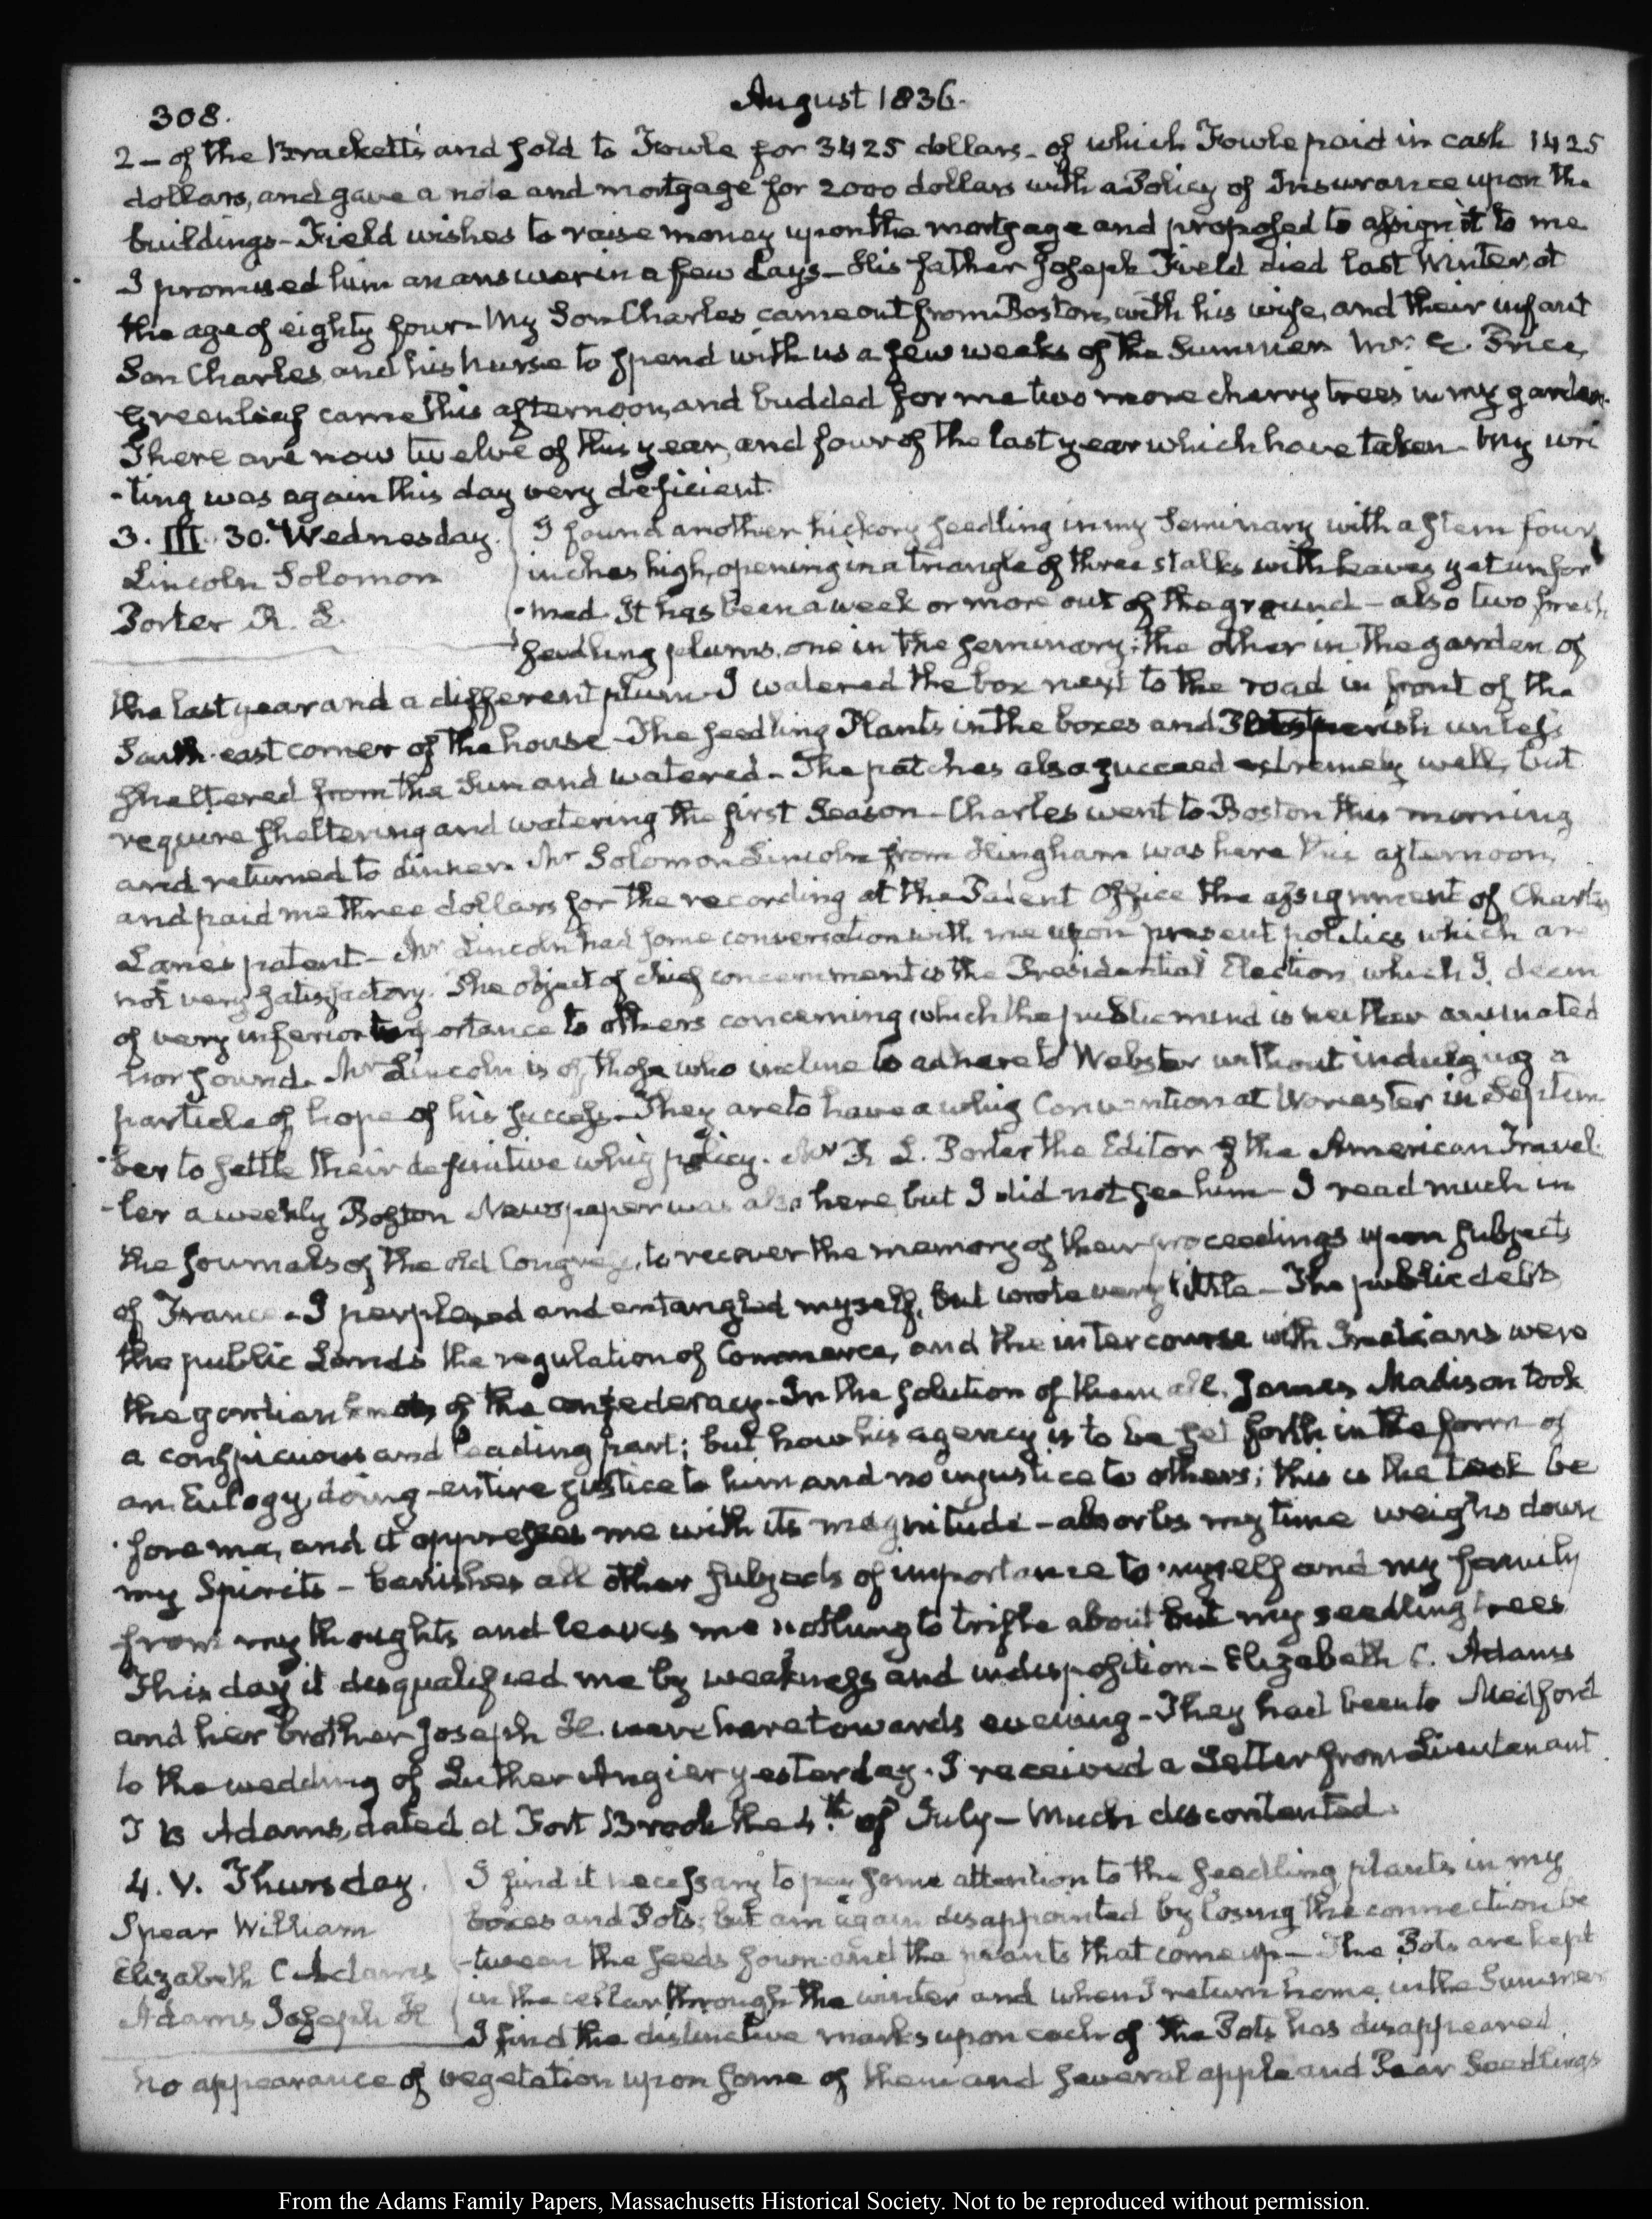 308.
August 1836.
2 - of the Bracketts and sold to Fowle for 3425 dollars - of which Fowle paid in cash 1425
dollars, and gave a note and mortgage for 2000 dollars with a Policy of Insurance upon the
buildings - Field wishes to raise money upon the mortgage and proposed to assign it to me
I promised him an answer in a few days - His father Joseph Field died last Winter at
the age of eighty four - My Son Charles came out from Boston, with his wife, and their infant
Son Charles, and his nurse to spend with us a few weeks of the Summer Mr. E. Price
Greenleaf came this afternoon, and budded for me two more cherry trees in my garden.
There are now twelve of this year, and four of the last year which have taken - My wri
-ting was again this day very deficient.
3. III. 30. Wednesday.
Lincoln Solomon
Porter R. L.
I found another hickory seedling in my Seminary with a stem four
inches high, opening in a triangle of three stalks with leaves yet unfor
-med. It has been a week or more out of the ground - also two fresh
seedling plums, one in the seminary; the other in the garden of
the last year and a different plum - I watered the box next to the road in front of the
South-east corner of the house - The seedling Plants in the boxes and Pots perish unless
sheltered from the Sun and watered - The patches also succeed extremely well, but
require sheltering and watering the first Season - Charles went to Boston this morning
and returned to dinner. Mr Solomon Lincoln from Hingham was here this afternoon,
and paid me three dollars for the recording at the Patent Office the assignment of Charles
Lane's patent - Mr Lincoln had some conversation with me upon present politics which are
not very satisfactory. The object of chief concernment is the Presidential Election, which I deem
of very inferior importance to others concerning which the public mind is neither animated
nor sound. Mr Lincoln is of those who incline to adhere to Webster without indulging a
particle of hope of his success - They are to have a whig Convention at Worcester in Septem
-ber to settle their definitive whig policy. Mr R L. Porter the Editor of the American Travel
-ler a weekly Boston Newspaper was also here, but I did not see him - I read much in
the Journals of the old Congress, to recover the memory of their proceedings upon subjects
of Finance - I perplexed and entangled myself, but wrote very little - The public debts
the public Lands the regulation of Commerce, and the intercourse with Indians were
the gordian knots of the confederacy - In the solution of them all, James Madison took
a conspicuous and leading part; but how his agency is to be set forth in the form of
an Eulogy, doing entire justice to him and no injustice to others; this is the task be
-fore me, and it oppresses me with its magnitude - absorbs my time weighs down
my Spirits - banishes all other subjects of importance to myself and my family
from my thoughts and leaves me nothing to trifle about but my seedling trees
This day it disqualified me by weakness and indisposition - Elizabeth C. Adams
and her brother Joseph H. were here towards evening - They had been to Medford
to the wedding of Luther Angier yesterday. I received a Letter from Lieutenant
J B Adams, dated at Fort Brook the 4th. of July - Much discontented.
4. V. Thursday.
Spear William
Elizabeth C Adams
Adams Joseph H
I find it necessary to pay some attention to the seedling plants in my
boxes and Pots; but am again disappointed by losing the connection be
-tween the seeds sown and the plants that come up - The Pots are kept
in the cellar through the winter and when I return home in the Summer
I find the distinctive marks upon each of the Pots has disappeared
no appearance of vegetation upon some of them and several apple and Pear Seedlings
From the Adams Family Papers, Massachusetts Historical Society. Not to be reproduced without permission.